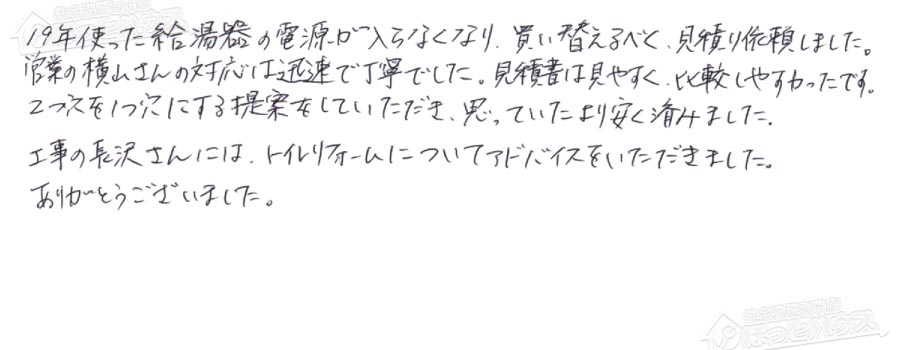 19年使った給湯器の電源が入らなくなり、買い替えるべく、見積り依頼しました。
営業の横山さんの対応は迅速で丁寧でした。見積書は見やすく、比較しやすかったです。
2つ穴を1つ穴にする提案をしていただき、思っていたより安く済みました。
工事の長沢さんには、トイレリフォームについてアドバイスをいただきました。
ありがとうございました。
ほっとハウス